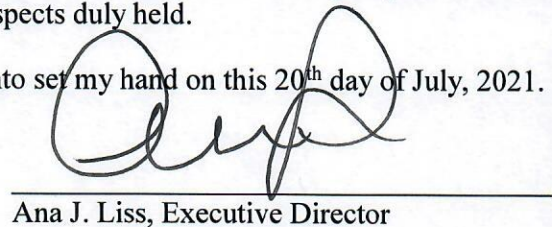 spects duly held.
nto set my hand on this 20th day of July, 2021.
Ana J. Liss, Executive Director